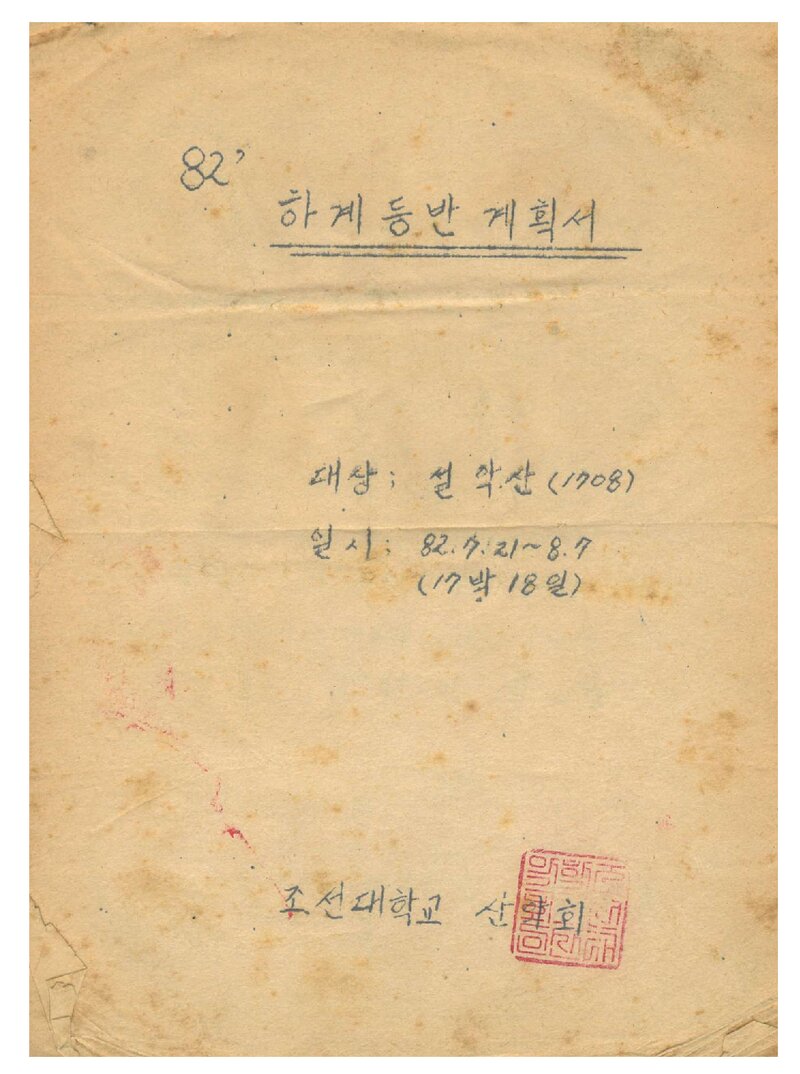 82’
하계등반 계획서
대상; 설악산(1708)
일시; 82.7.21~8.7
(17박 18일)
조선대학교 산악회